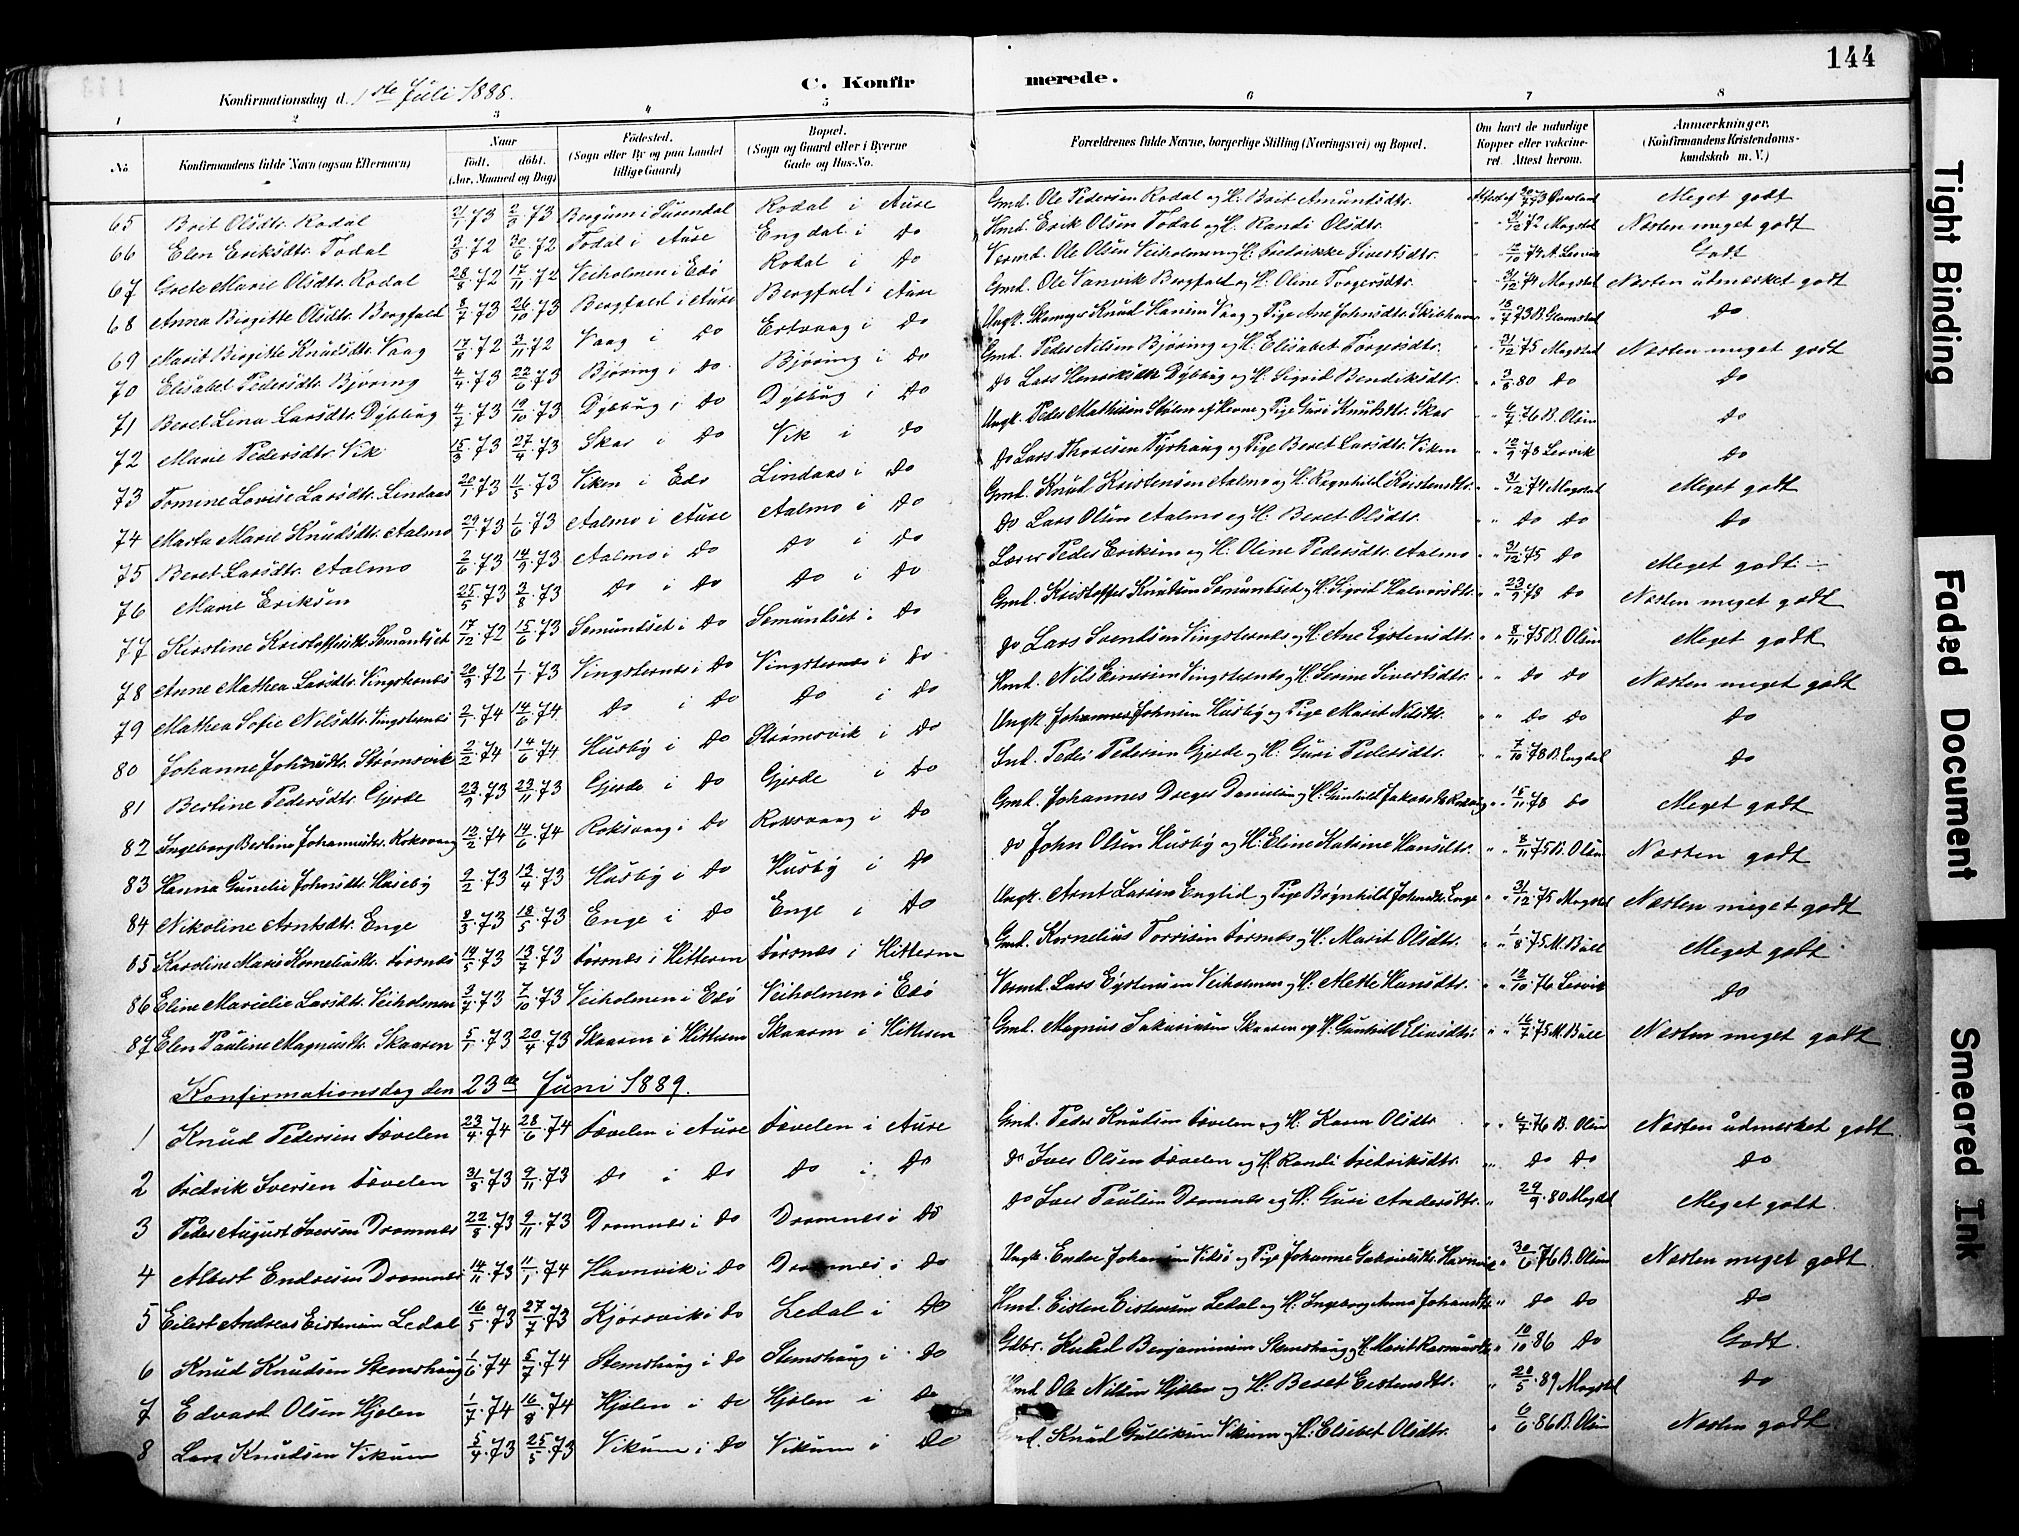 144
Konfirmationsdag d. 1ste Juli 1888.
C. Konfirmerede.
1 2 3 4 5 6 7 8
No
Konfirmandens fulde Navn (ogsaa Efternavn)
Naar
Født. døbt.
(Aar, Maaned og Dag)
Fødested.
(Sogn eller By og paa Landet tillige Gaard)
Bopæl.
(Sogn og Gaard eller i Byerne Gade og Hus-No.
Forældrenes fulde Navne, borgerlige Stilling (Næringsvei) og Bopæl.
Om havt de naturlige Kopper eller vakcineret. Attest herom.
Anmærkninger.
(Konfirmandens Kristendomskundskab m. V.)
65 Brit Olsdtr. Rodal 73 2/3 73 Rodal i Aure Gmd. Ole Pedersen Rodal og H. Brit Amundsdtr. Meget godt
66 Elen Eriksdtr. Todal 72 30/6 72 Todal i Aure Engdal i Do Hmd. Erik Olsen Todal og H. Randi Olsdtr. 31/12 72 Mogstad Næsten meget godt
67 Grete Marie Olsdtr. Rodal 28/8 72 17/11 72 Veiholmen i Edø Rodal i Do Ole Olsen Veiholmen og H. Fredrikke Sivertsdtr. Godt
68 Anna Birgitte Olsdtr. Bergfald 8/7 73 26/10 73 Bergfald i Aure Bergfald i Aure Gmd. Ole Vanvik Bergfald og H. Oline Torgersdtr. 31/12 74 Mogstad Næsten udmærket godt
69 Marit Birgitte Knudsdtr. Vaag 17/8 72 3/11 72 Vaag i Do Ertvaag i Do Ungk. Knud Hansen Vaag og Pige Ane Johnsdtr. 18/7 73 Do
70 Elisabet Pedersdtr. Bjøring 4/4 73 22/6 73 Bjøring i Do Bjøring i Do Gmd. Peder Nilsen Bjøring og H. Elisabet Torgersdtr. 31/12 75 Mogstad Næsten meget godt
71 Beret Lina Larsdtr. Dybbug 4/7 73 19/10 73 Dybbug i Do Dybbug i Do Do Lars Henriksen Dybbug og H. Sigrid Bendiksdtr. 3/8 80 Do Do
72 Marie Pedersdtr. Vik 15/3 73 27/4 73 Skar i Do Vik i Do Ungk. Peder Mathisen af Hevne og Pige Guri Knudsdtr. Skar 6/7 76 B. Olsen Do
73 Tomine Lovise Larsdtr. Lindaas 20/1 73 11/5 73 Viken i Edø Lindaas i Do Do Lars Thoresen Tyrhaug og Pige Beret Larsdtr. Viken Do
74 Marta Marie Knudsdtr. Aalmo 29/1 73 1/6 73 Aalmo i Aure Aalmo i Do Gmd. Knud Kristensen Aalmo og H. Ragnhild Kristensdtr. 31/12 74 Mogstad Meget godt
75 Beret Larsdtr. Aalmo 2/6 73 14/9 73 Aalmo i Do Do i Do Do Lars Olsen Aalmo og H. Beret Olsdtr. Do Do Do
76 Marie Eriksen 25/5 73 3/8 73 Do i Do Do i Do Lærer Peder Eriksen og H. Oline Pedersdtr. Aalmo 31/12 75 Do Meget godt
77 Kirstine Kristoffersdtr. Semundset 17/12 72 15/6 73 Semundset i Do Semundset i Do Gmd. Kristoffer Knudsen Semundset og H. Sigrid Halvorsdtr. 23/9 78 Do Næsten meget godt
78 Anne Mathea Larsdtr. Vingsternes 20/9 72 1/1 73 Vingsternes i Do Vingsternes i Do Do Lars Svendsen Vingsternes og H. Ane Eystensdtr. 8/11 75 B. Olsen Meget godt
79 Mathea Sofie Nilsdtr. Vingsternes 2/1 74 14/6 74 Do i Do Do i Do Hmd. Nils Einersen Vingsternes og H. Serine Sivertsdtr. Do Do Næsten meget godt
80 Johanne Johnsdtr. Strømsvik 2/2 74 14/6 74 Husby i Do Strømsvik i Do Ungk. Johannes Johnsen Husby og Pige Marit Nilsdtr. Do Do Do
81 Berline Pedersdtr. Gjerde 23/9 73 23/11 73 Gjerde i Do Gjerde i Do Ind. Peder Pedersen Gjerde og H. Guri Pedersdtr. 7/10 78 B. Engdal Do
82 Ingeborg Berlina Johannesdtr. Roksvaag 12/2 74 14/6 74 Roksvaag i Do Roksvaag i Do Gmd. Johannes Dreger Danielsen og H. Gunhild 15/11 78 Do Meget godt
83 Hanna Gunelie Johnsdtr. Husby 2/2 73 13/4 73 Husby i Do Husby i Do Do John Olsen Husby og H. Eline Katrine Hansdtr. 8/11 75 B. Olsen Næsten godt
84 Nikoline Arntsdtr. Enge 8/3 73 18/5 73 Enge i Do Enge i Do Ungk. Arnt Larsen Englid og Pige Brynhild Johnsdtr. Enge 31/12 75 Mogstad Næsten meget godt
85 Karoline Marie Korneliusdtr. Forsnes 14/5 73 13/7 73 Forsnes i Hitteren Forsnes i Hitteren Gmd. Kornelius Torrisen Forsnes og H. Marit Olsdtr. 1/8 75 M. Bull Meget godt
86 Eline Marselie Larsdtr. Veiholmen 3/4 73 7/10 73 Veiholmen i Edø Veiholmen i Edø Lars Eystensen Veiholmen og H. Mette Hansdtr. 76 Do
87 Elen Pauline Magnusdtr. Skaaren 5/1 73 20/4 73 Skaaren i Hitteren Skaaren i Hitteren Gmd. Magnus Sakariasen Skaaren og H. Gunhild Eliasdtr. 16/7 75 M. Bull Næsten meget godt
Konfirmationsdag den 23de Juni 1889.
1 Knud Pedersen Fævelen 23/4 74 28/6 74 Fævelen i Aure Fævelen i Aure Gmd. Peder Knudsen Fævelen og H. Karen Olsdtr. 6/7 76 B. Olsen Næsten udmærket godt.
2 Fredrik Iversen Fævelen 31/8 73 9/11 73 Do i Do Do i Do Do Iver Olsen Fævelen og H. Randi Fredriksdtr. Do Do Do
3 Peder August Iversen Dromnes 22/8 73 9/11 73 Dromnes i Do Dromnes i Do Do Iver Paulsen Dromnes og H. Guri Andersdtr. 29/9 80 Mogstad Meget godt.
4 Albert Endresen Dromnes 14/11 73 11/1 74 Havnvik i Do Dromnes i Do Ungk. Endre Johansen og Pige Johanne 30/6 76 B. Olsen Næsten meget godt.
5 Eilert Andreas Eistensen Ledal 16/5 73 27/7 73 Kjørsvik i Do Ledal i Do Hmd. Eisten Eistensen Ledal og H. Ingeborg Anna Johansdtr. Do Do Do
6 Knud Knudsen Stemshaug 1/6 74 5/7 74 Stemshaug i Do Stemshaug i Do Gdbr. Knud Benjaminsen Stemshaug og H. Marit Rasmusdtr. 10/10 86 Do Godt.
7 Edvart Olsen Hjølen 1/7 74 16/8 74 Hjølen i Do Hjølen i Do Hmd. Ole Nilsen Hjølen og H. Beret Eistensdtr. 20/5 89 Mogstad Do
8 Lars Knudsen Vikum 5/4 73 25/5 73 Vikum i Do Vikum i Do Gmd. Knud Gulliksen Vikum og H. Elisabet Olsdtr. 6/6 86 B. Olsen Næsten godt
Tight Binding
Faded Document
Smeared Ink